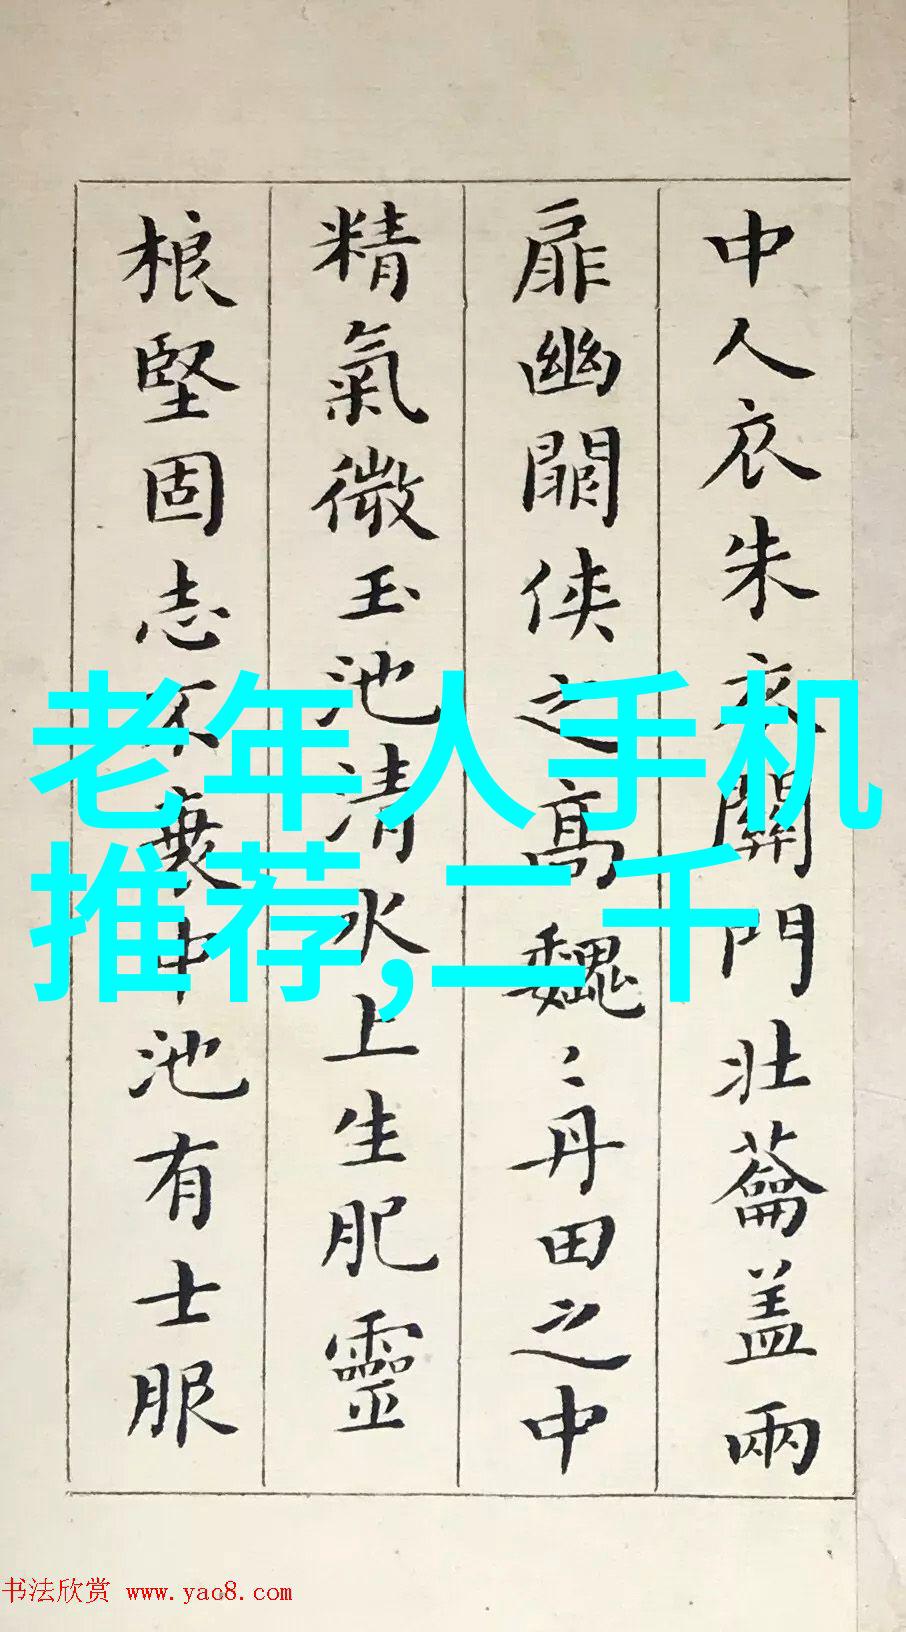 中人衣朱衣關門壮蘥盖兩
扉幽闗侠之高魏〻丹田之中
精氣微玉池清水上生肥靈
根堅固志不衰中池有士服
老年人手机
推荐,二千
书法欣赏 www.yac8.com